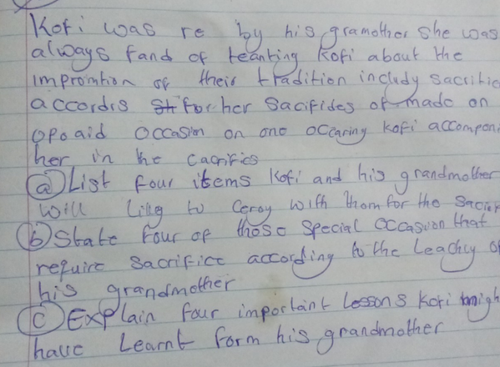 Kofi was re by his gramother she was
always fand of teanting Kofi about the
impromtion of their tradition includy sacrific
accordis for her Sacifides of made on
opoaid occasion on one ocearing Kofi accompon
her in the cacrifics
(a) List four items Kofi and his grandmother
will liky to ceroy with them for the sacrif
(b) State four of those special occasion that
require sacrifice according to the Leachy of
his grandmother
(c) Explain four important Lessons Kofi migh
have Learnt form his grandmother